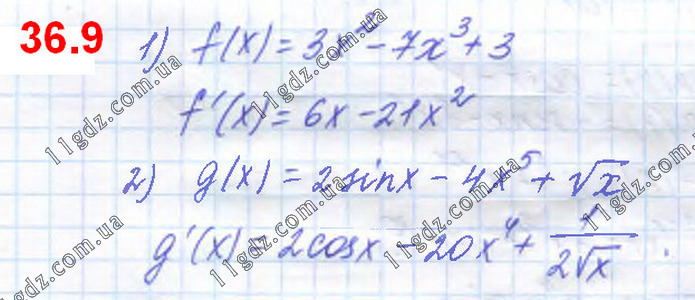 36.9
1) f(x) = 3x² - 7x³ + 3
f'(x) = 6x - 21x²
2) g(x) = 2sinx - 4x⁵ + √x
g'(x) = 2cosx - 20x⁴ + 1/2√x .
11gdz.com.ua
11gdz.com.ua
11gdz.com.ua
11gdz.com.ua
11gdz.com.ua
11gdz.com.ua
11gdz.com.ua